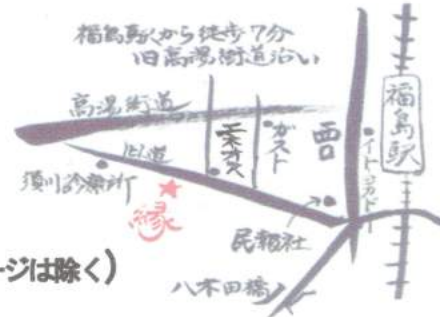 福島駅から徒歩7分
旧高湯街道沿い
高湯街道
旧道
須川診療所
縁
ガスト
西口
イトーヨーカドー
福島駅
民報社
八木田橋
ージは除く）